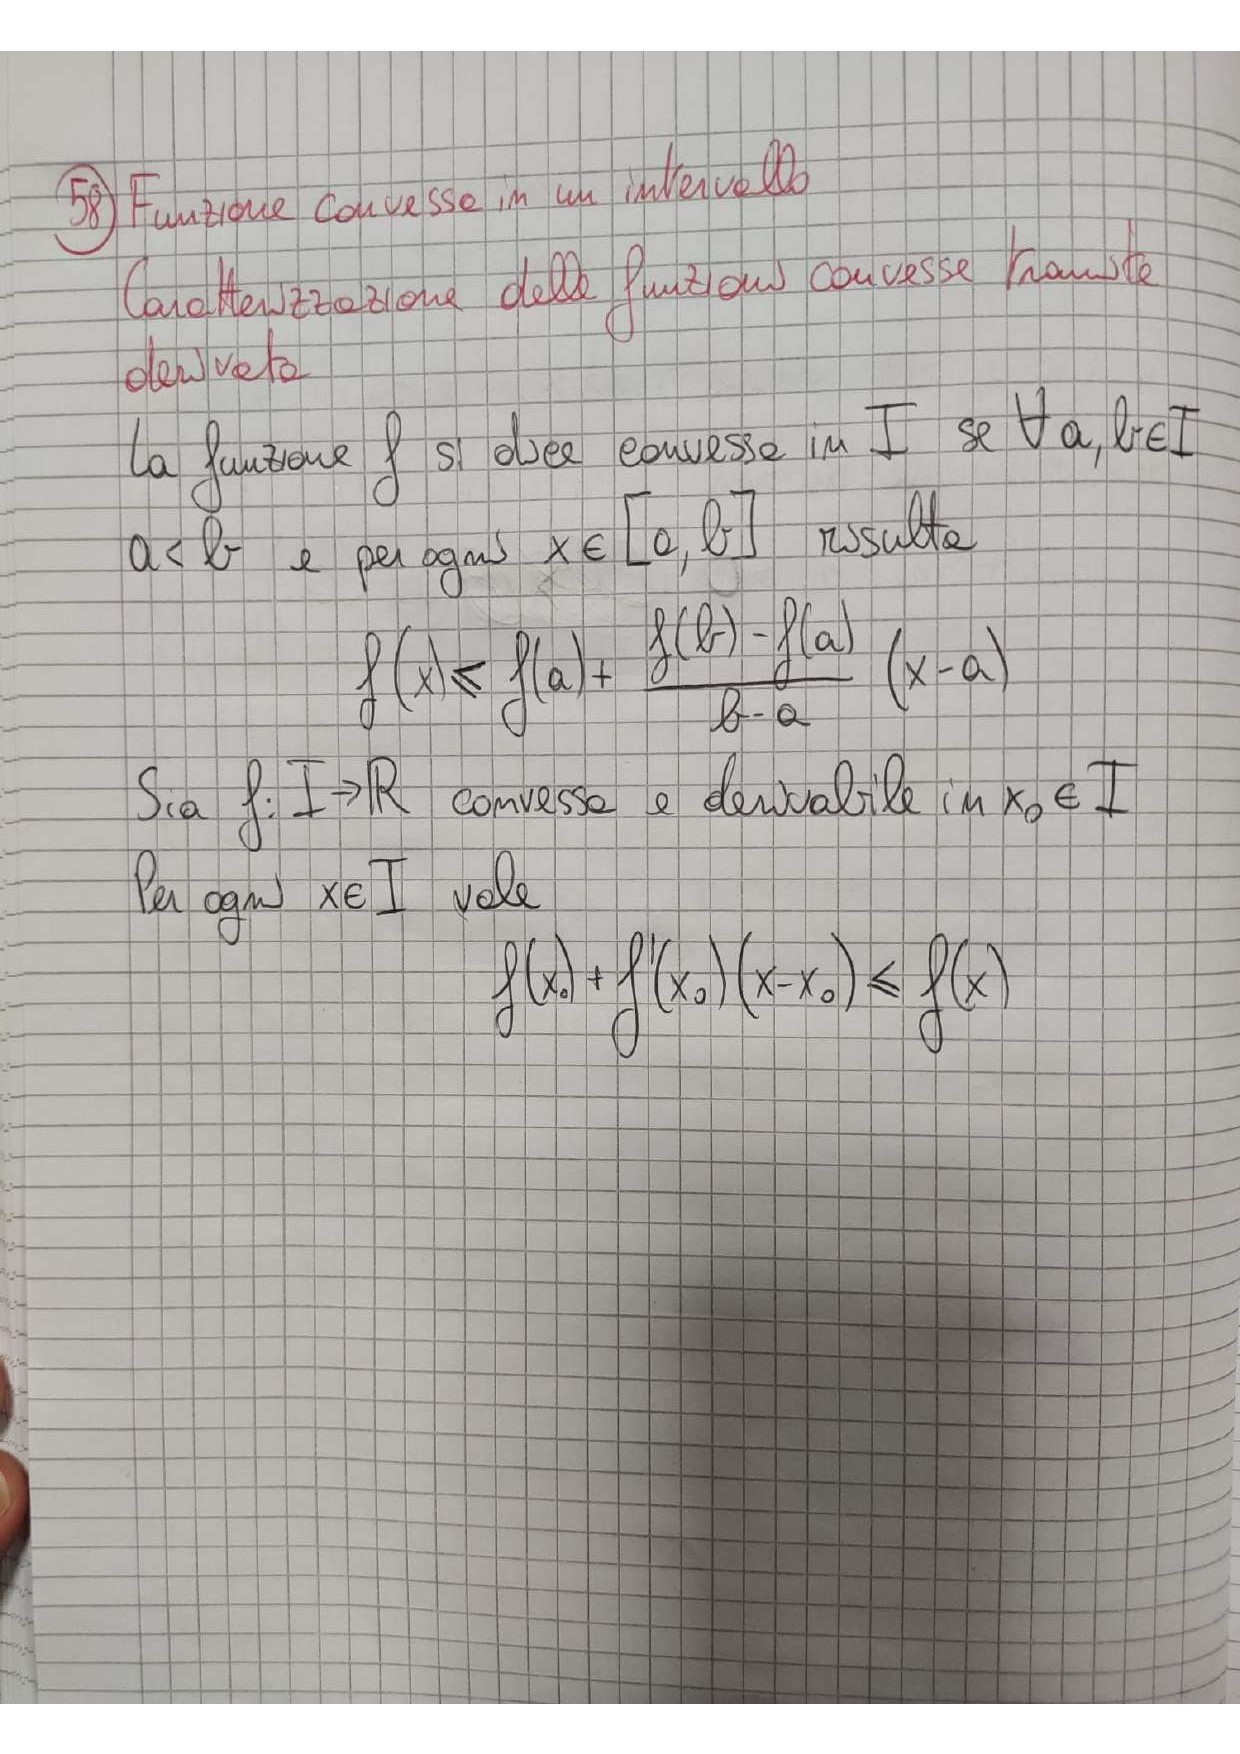 58) Funzione convessa in un intervallo
Caratterizzazione delle funzioni convesse tramite
derivata
La funzione f si dice convessa in I se ∀ a, b ∈ I
a < b e per ogni x ∈ [a, b] risulta
f(x) ⩽ f(a) + \frac{f(b) - f(a)}{b - a} (x - a)
Sia f: I → ℝ convessa e derivabile in x₀ ∈ I
Per ogni x ∈ I vale
f(x₀) + f'(x₀)(x - x₀) ⩽ f(x)